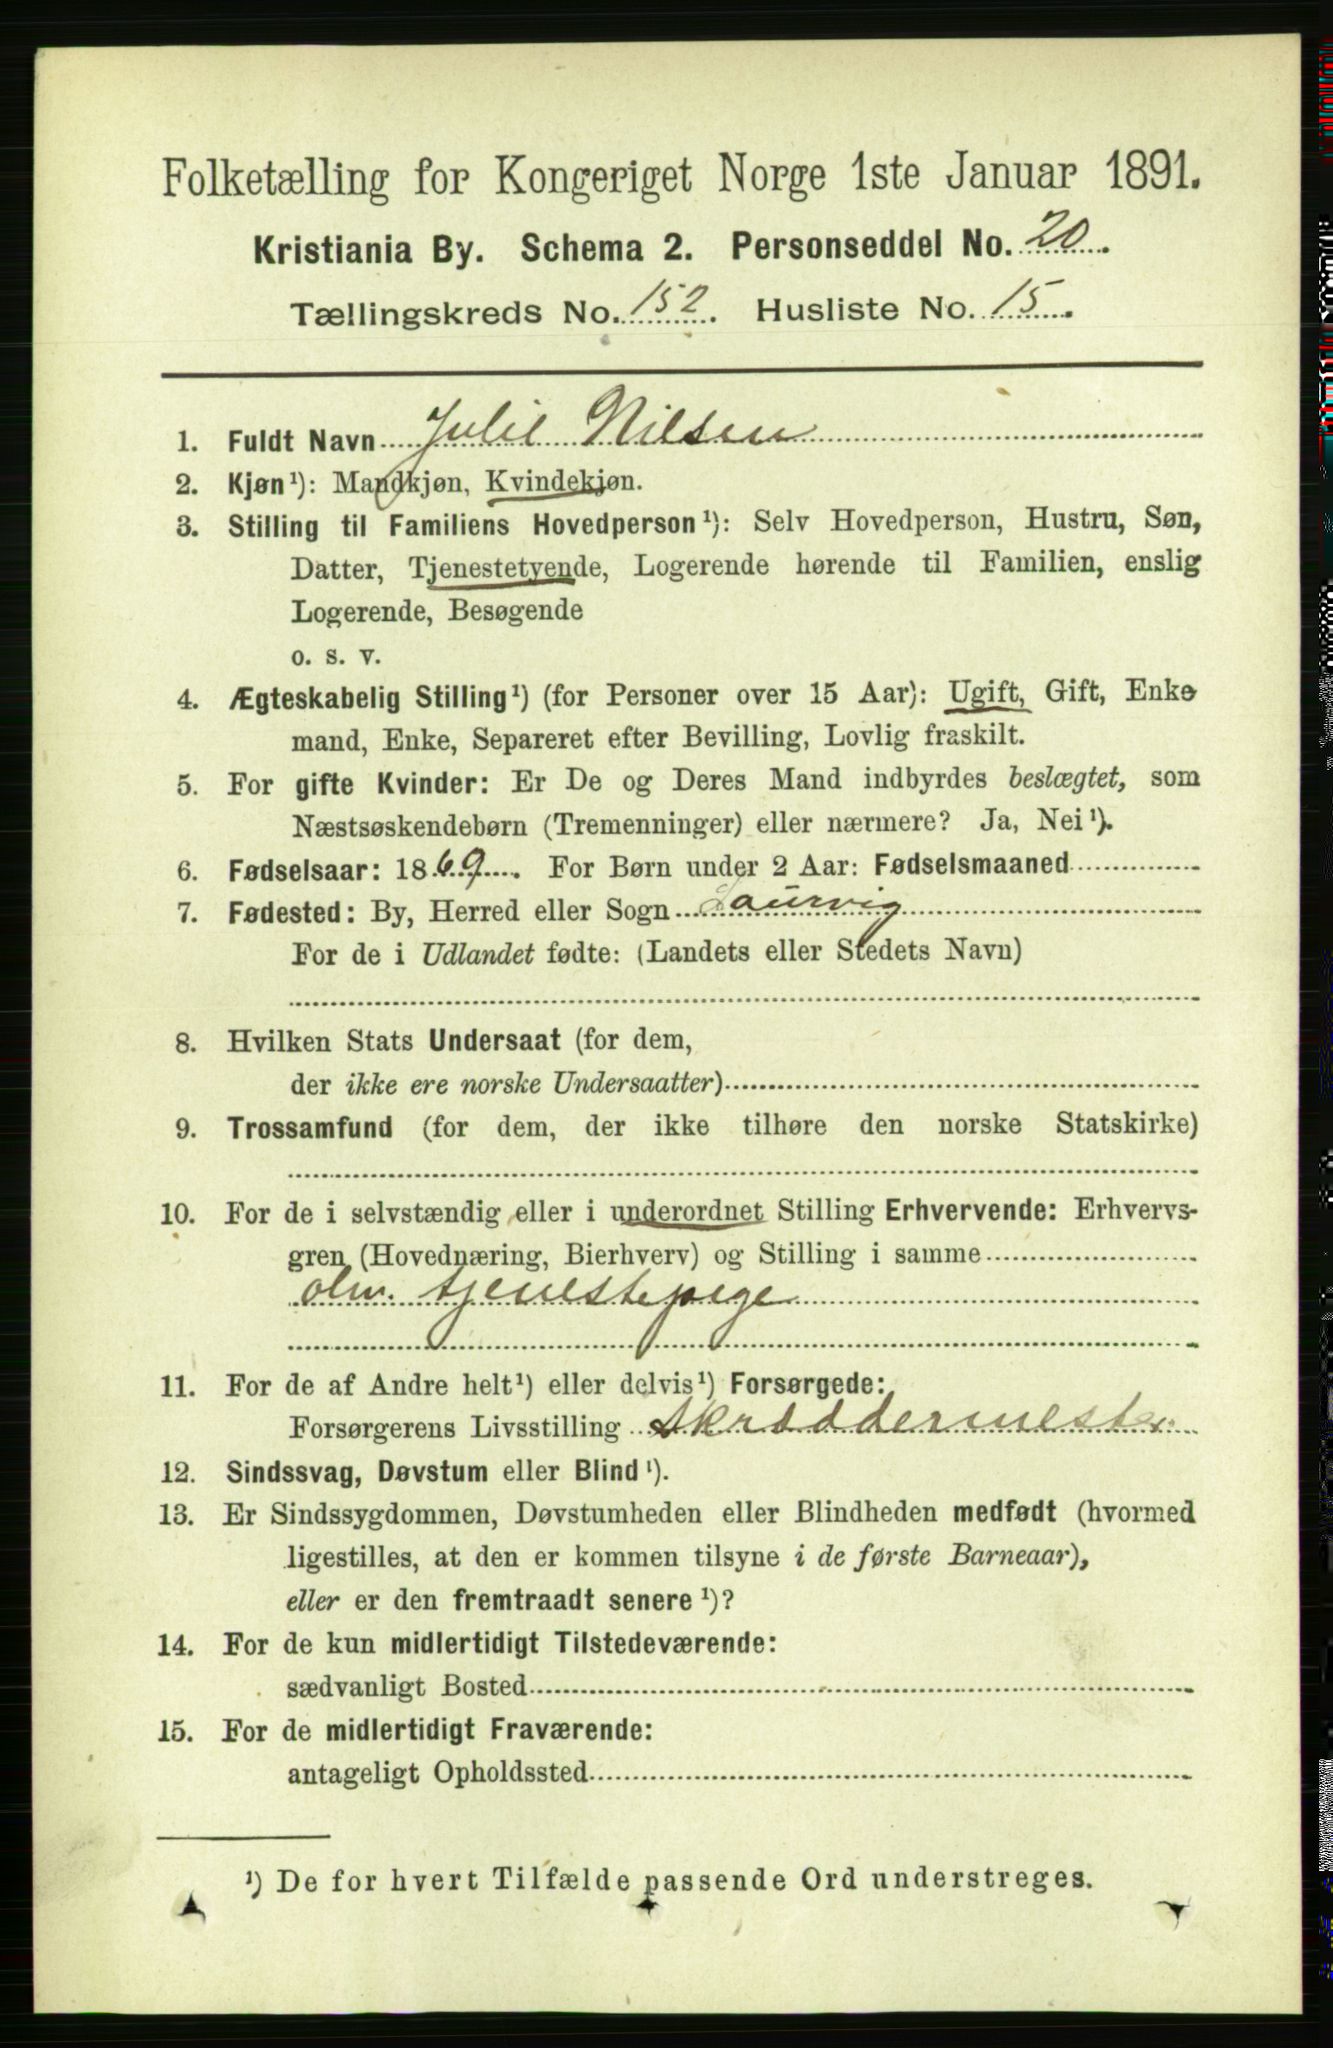 Folketælling for Kongeriget Norge 1ste Januar 1891.
Kristiania By. Schema 2. Personseddel No. 20.
Tællingskreds No. 152. Husliste No. 15.
1. Fuldt Navn Julie Nilsen
2. Kjøn¹): Mandkjøn, Kvindekjøn.
3. Stilling til Familiens Hovedperson¹): Selv Hovedperson, Hustru, Søn,
Datter, Tjenestetyende, Logerende hørende til Familien, enslig
Logerende, Besøgende
o. s. v.
4. Ægteskabelig Stilling¹) (for Personer over 15 Aar): Ugift, Gift, Enke
mand, Enke, Separeret efter Bevilling, Lovlig fraskilt.
5. For gifte Kvinder: Er De og Deres Mand indbyrdes beslægtet, som
Næstsøskendebørn (Tremenninger) eller nærmere? Ja, Nei¹).
6. Fødselsaar: 1869. For Børn under 2 Aar: Fødselsmaaned
7. Fødested: By, Herred eller Sogn Laurvig
For de i Udlandet fødte: (Landets eller Stedets Navn)
8. Hvilken Stats Undersaat (for dem,
der ikke ere norske Undersaatter)
9. Trossamfund (for dem, der ikke tilhøre den norske Statskirke)
10. For de i selvstændig eller i underordnet Stilling Erhvervende: Erhvervs-
gren (Hovednæring, Bierhverv) og Stilling i samme
alm. tjenestepige
11. For de af Andre helt¹) eller delvis¹) Forsørgede:
Forsørgerens Livsstilling Skræddermester
12. Sindssvag, Døvstum eller Blind¹).
13. Er Sindssygdommen, Døvstumheden eller Blindheden medfødt (hvormed
ligestilles, at den er kommen tilsyne i de første Barneaar),
eller er den fremtraadt senere¹)?
14. For de kun midlertidigt Tilstedeværende:
sædvanligt Bosted
15. For de midlertidigt Fraværende:
antageligt Opholdssted
¹) De for hvert Tilfælde passende Ord understreges.